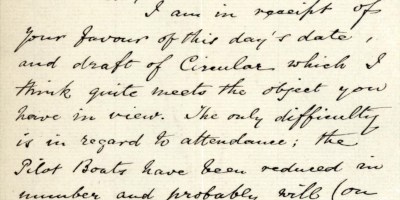 I am in receipt of
your favour of this day's date,
and draft of Circular which I
think quite meets the object you
have in view. The only difficulty
is in regard to attendance; the
Pilot Boats have been reduced in
number and probably will (on